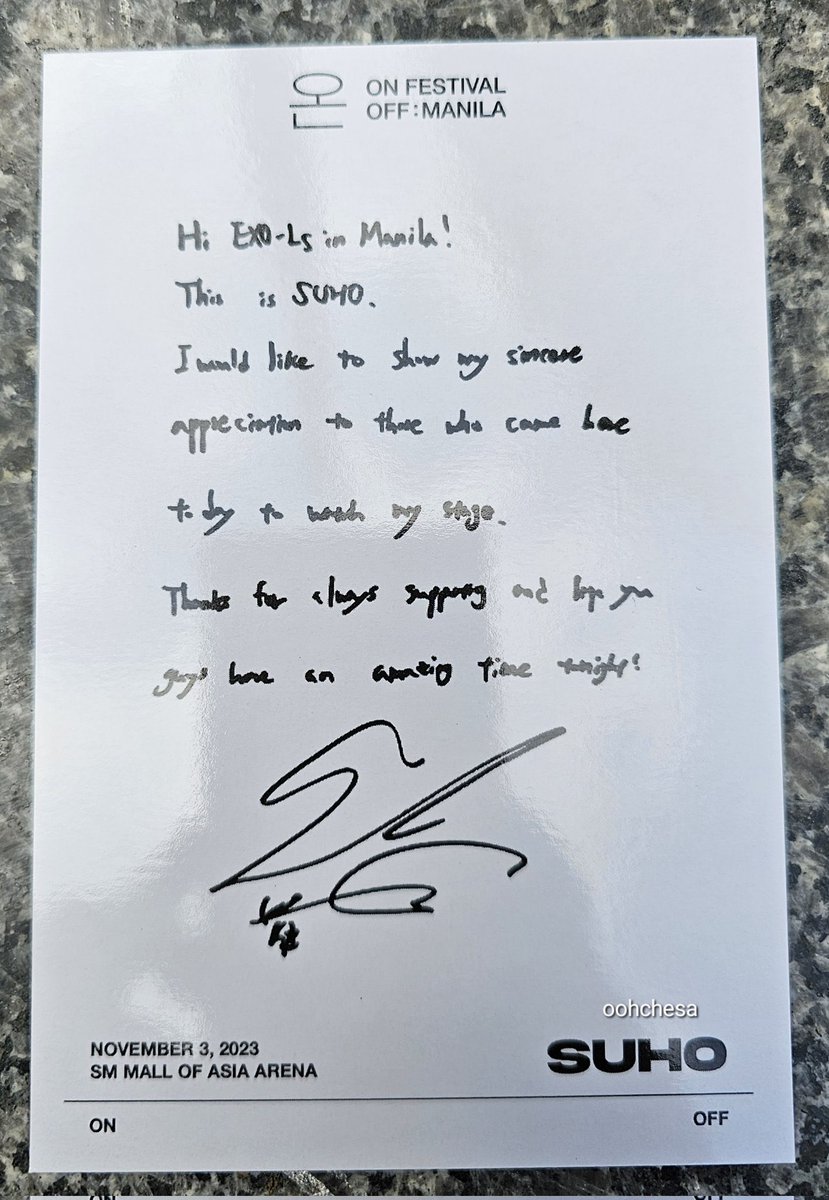 ON FESTIVAL
OFF:MANILA
Hi EXO-Ls in Manila!
This is SUHO.
I would like to show my sincere
appreciation to those who came here
today to watch my stage.
Thanks for always supporting and hope you
guys have an amazing time tonight!
oohchesa
NOVEMBER 3, 2023
SM MALL OF ASIA ARENA
SUHO
ON
OFF